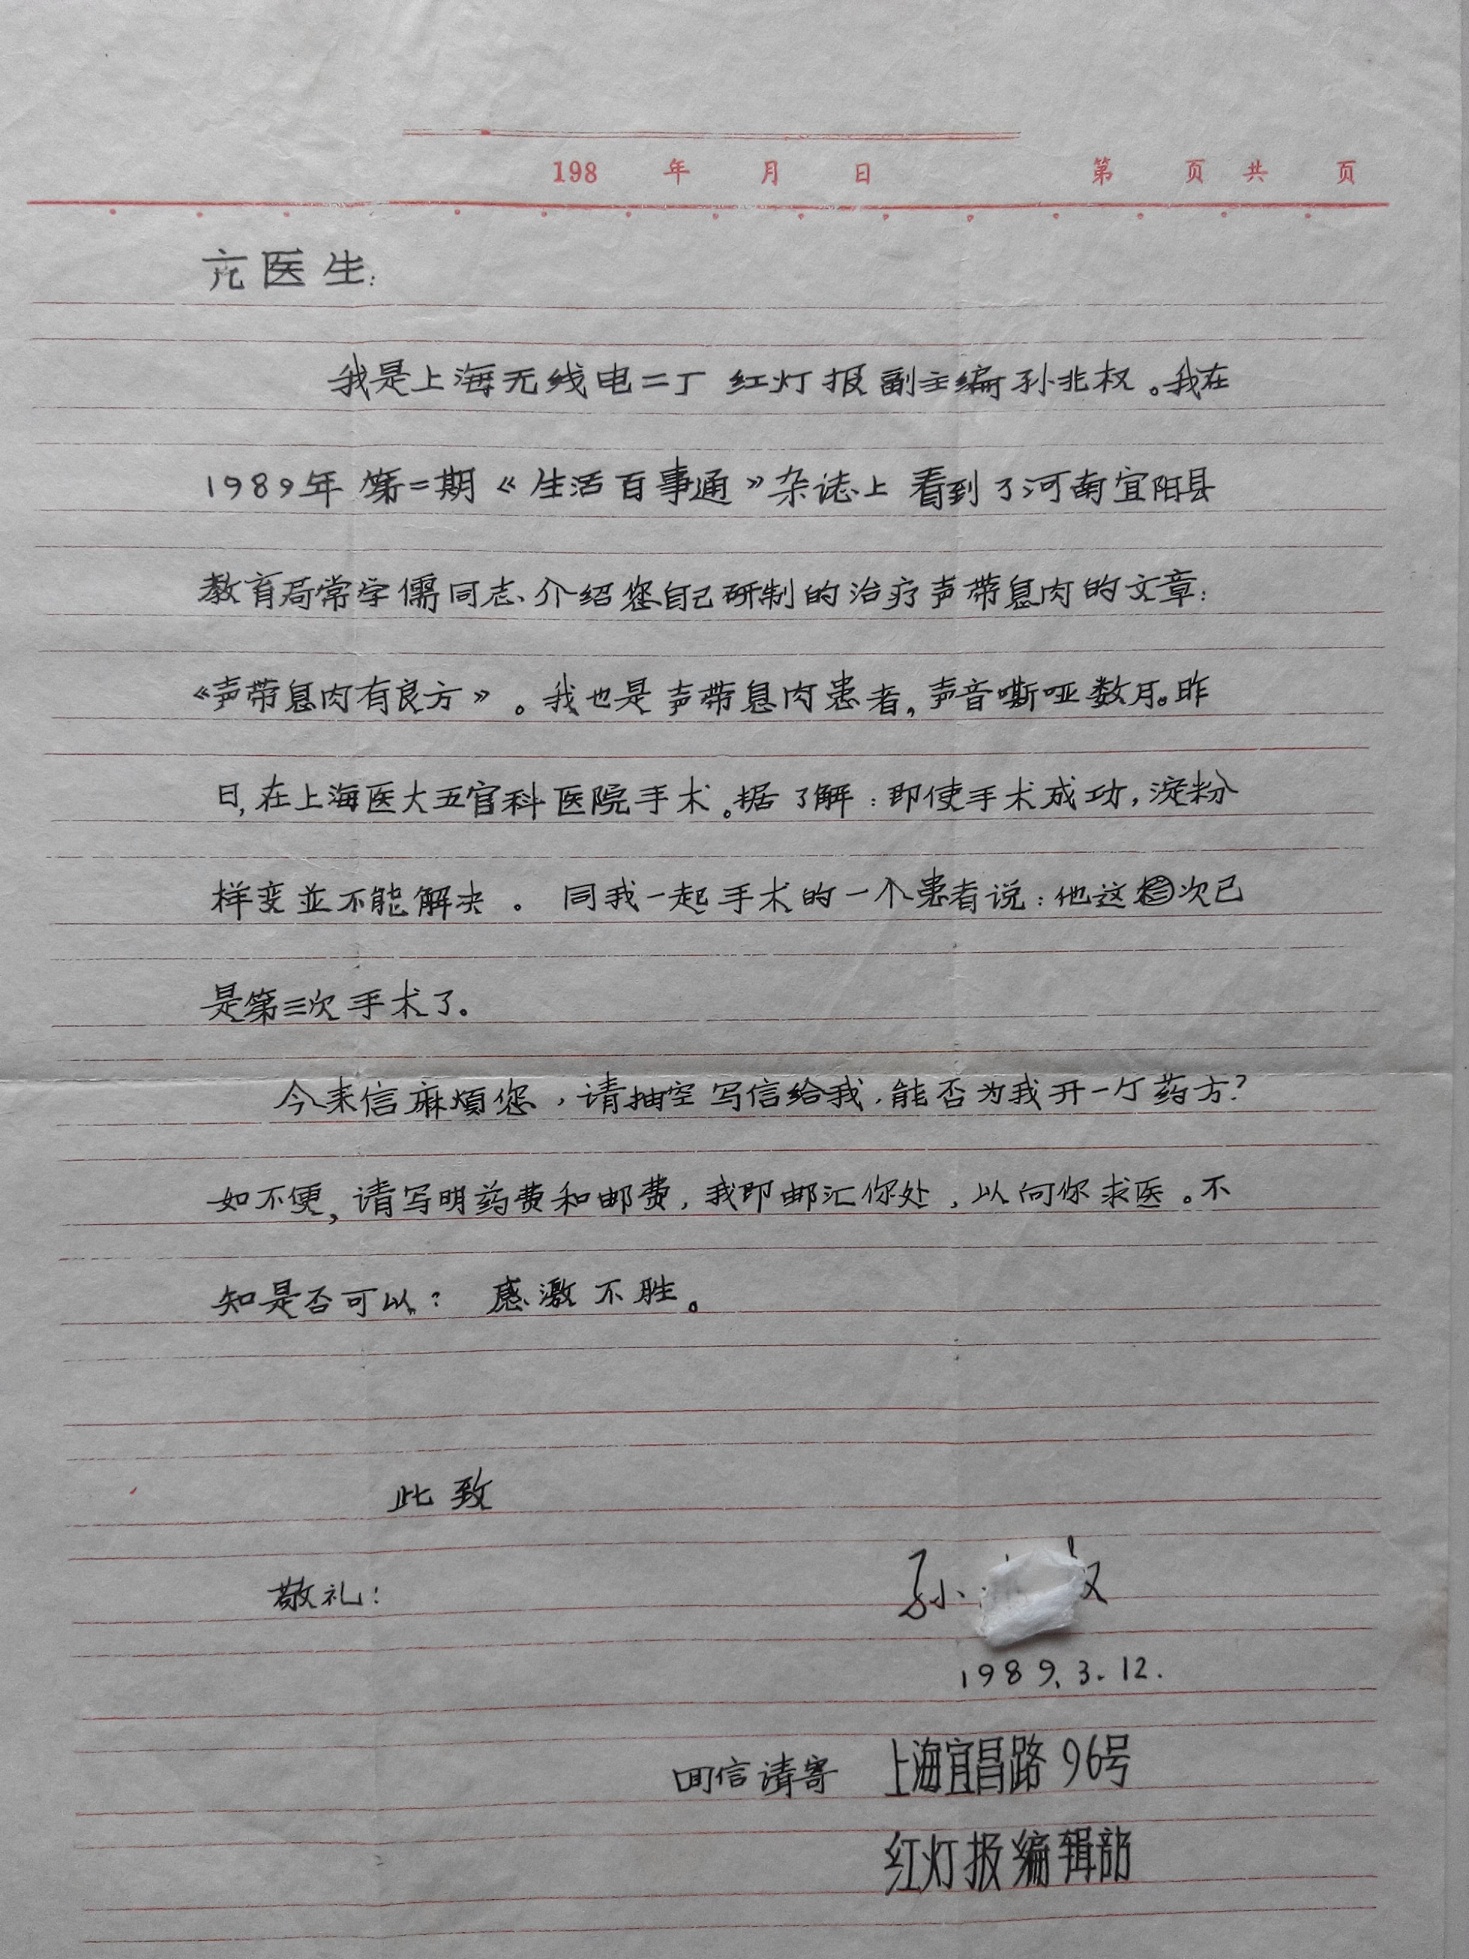 198 年 月 日 第 页 共 页
亢医生:
我是上海无线电二丁 红灯报副主编孙兆权。我在
1989年第二期《生活百事通》杂誌上看到了河南宜阳县
教育局常学儒同志、介绍您自己研制的治疗声带息肉的文章:
《声带息肉有良方》。我也是声带息肉患者,声音嘶哑数月。昨
日,在上海医大五官科医院手术。据了解:即使手术成功,淀粉
样变並不能解决。 同我一起手术的一个患者说:他这次已
是第三次手术了。
今来信麻煩您,请抽空写信给我,能否为我开一个药方?
如不便,请写明药费和邮费,我即邮汇你处,以向你求医。不
知是否可以? 感激不胜。
此致
敬礼:
孙
1989.3.12.
回信请寄 上海宜昌路96号
红灯报编辑部